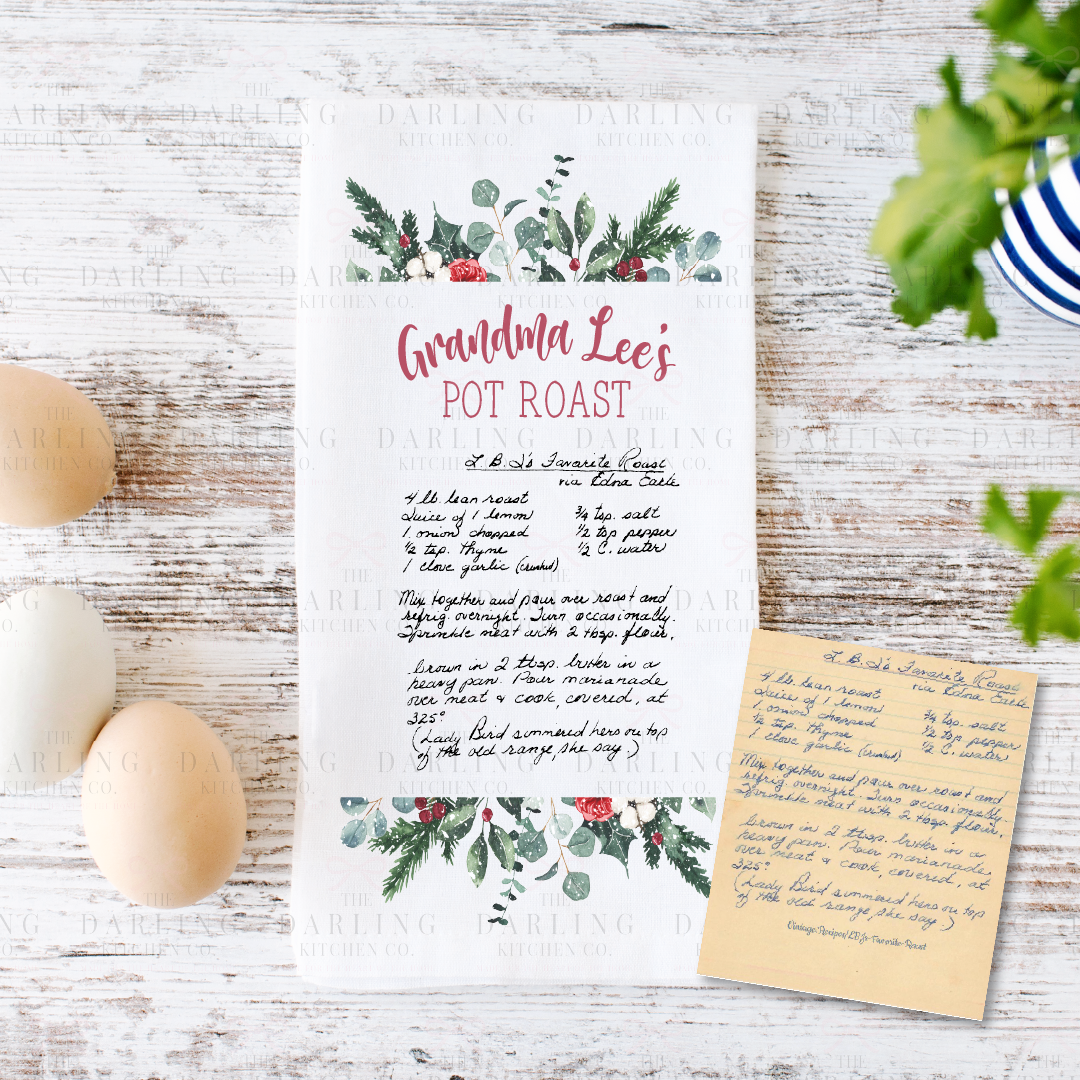 Grandma Lee's
POT ROAST
L. B. J's Favorite Roast
via Edna Earle
4 lb. lean roast
Juice of 1 lemon
1 onion chopped
½ tsp. thyme
1 clove garlic (crushed)
¾ tsp. salt
½ tsp pepper
½ C. water
Mix together and pour over roast and
refrig. overnight. Turn occasionally.
Sprinkle meat with 2 tbsp. flour,
brown in 2 tbsp. butter in a
heavy pan. Pour marianade
over meat & cook, covered, at
325°
(Lady Bird simmered hers on top
of the old range, she say.)
L. B. J's Favorite Roast
via Edna Earle
4 lb. lean roast
Juice of 1 lemon
1 onion chopped
½ tsp. thyme
1 clove garlic (crushed)
¾ tsp. salt
½ tsp pepper
½ C. water
Mix together and pour over roast and
refrig. overnight. Turn occasionally.
Sprinkle meat with 2 tbsp. flour,
brown in 2 tbsp. butter in a
heavy pan. Pour marianade
over meat & cook, covered, at
325°
(Lady Bird simmered hers on top
of the old range, she say.)
Vintage.Recipes/LBJs-Favorite-Roast
THE
DARLING
KITCHEN CO.